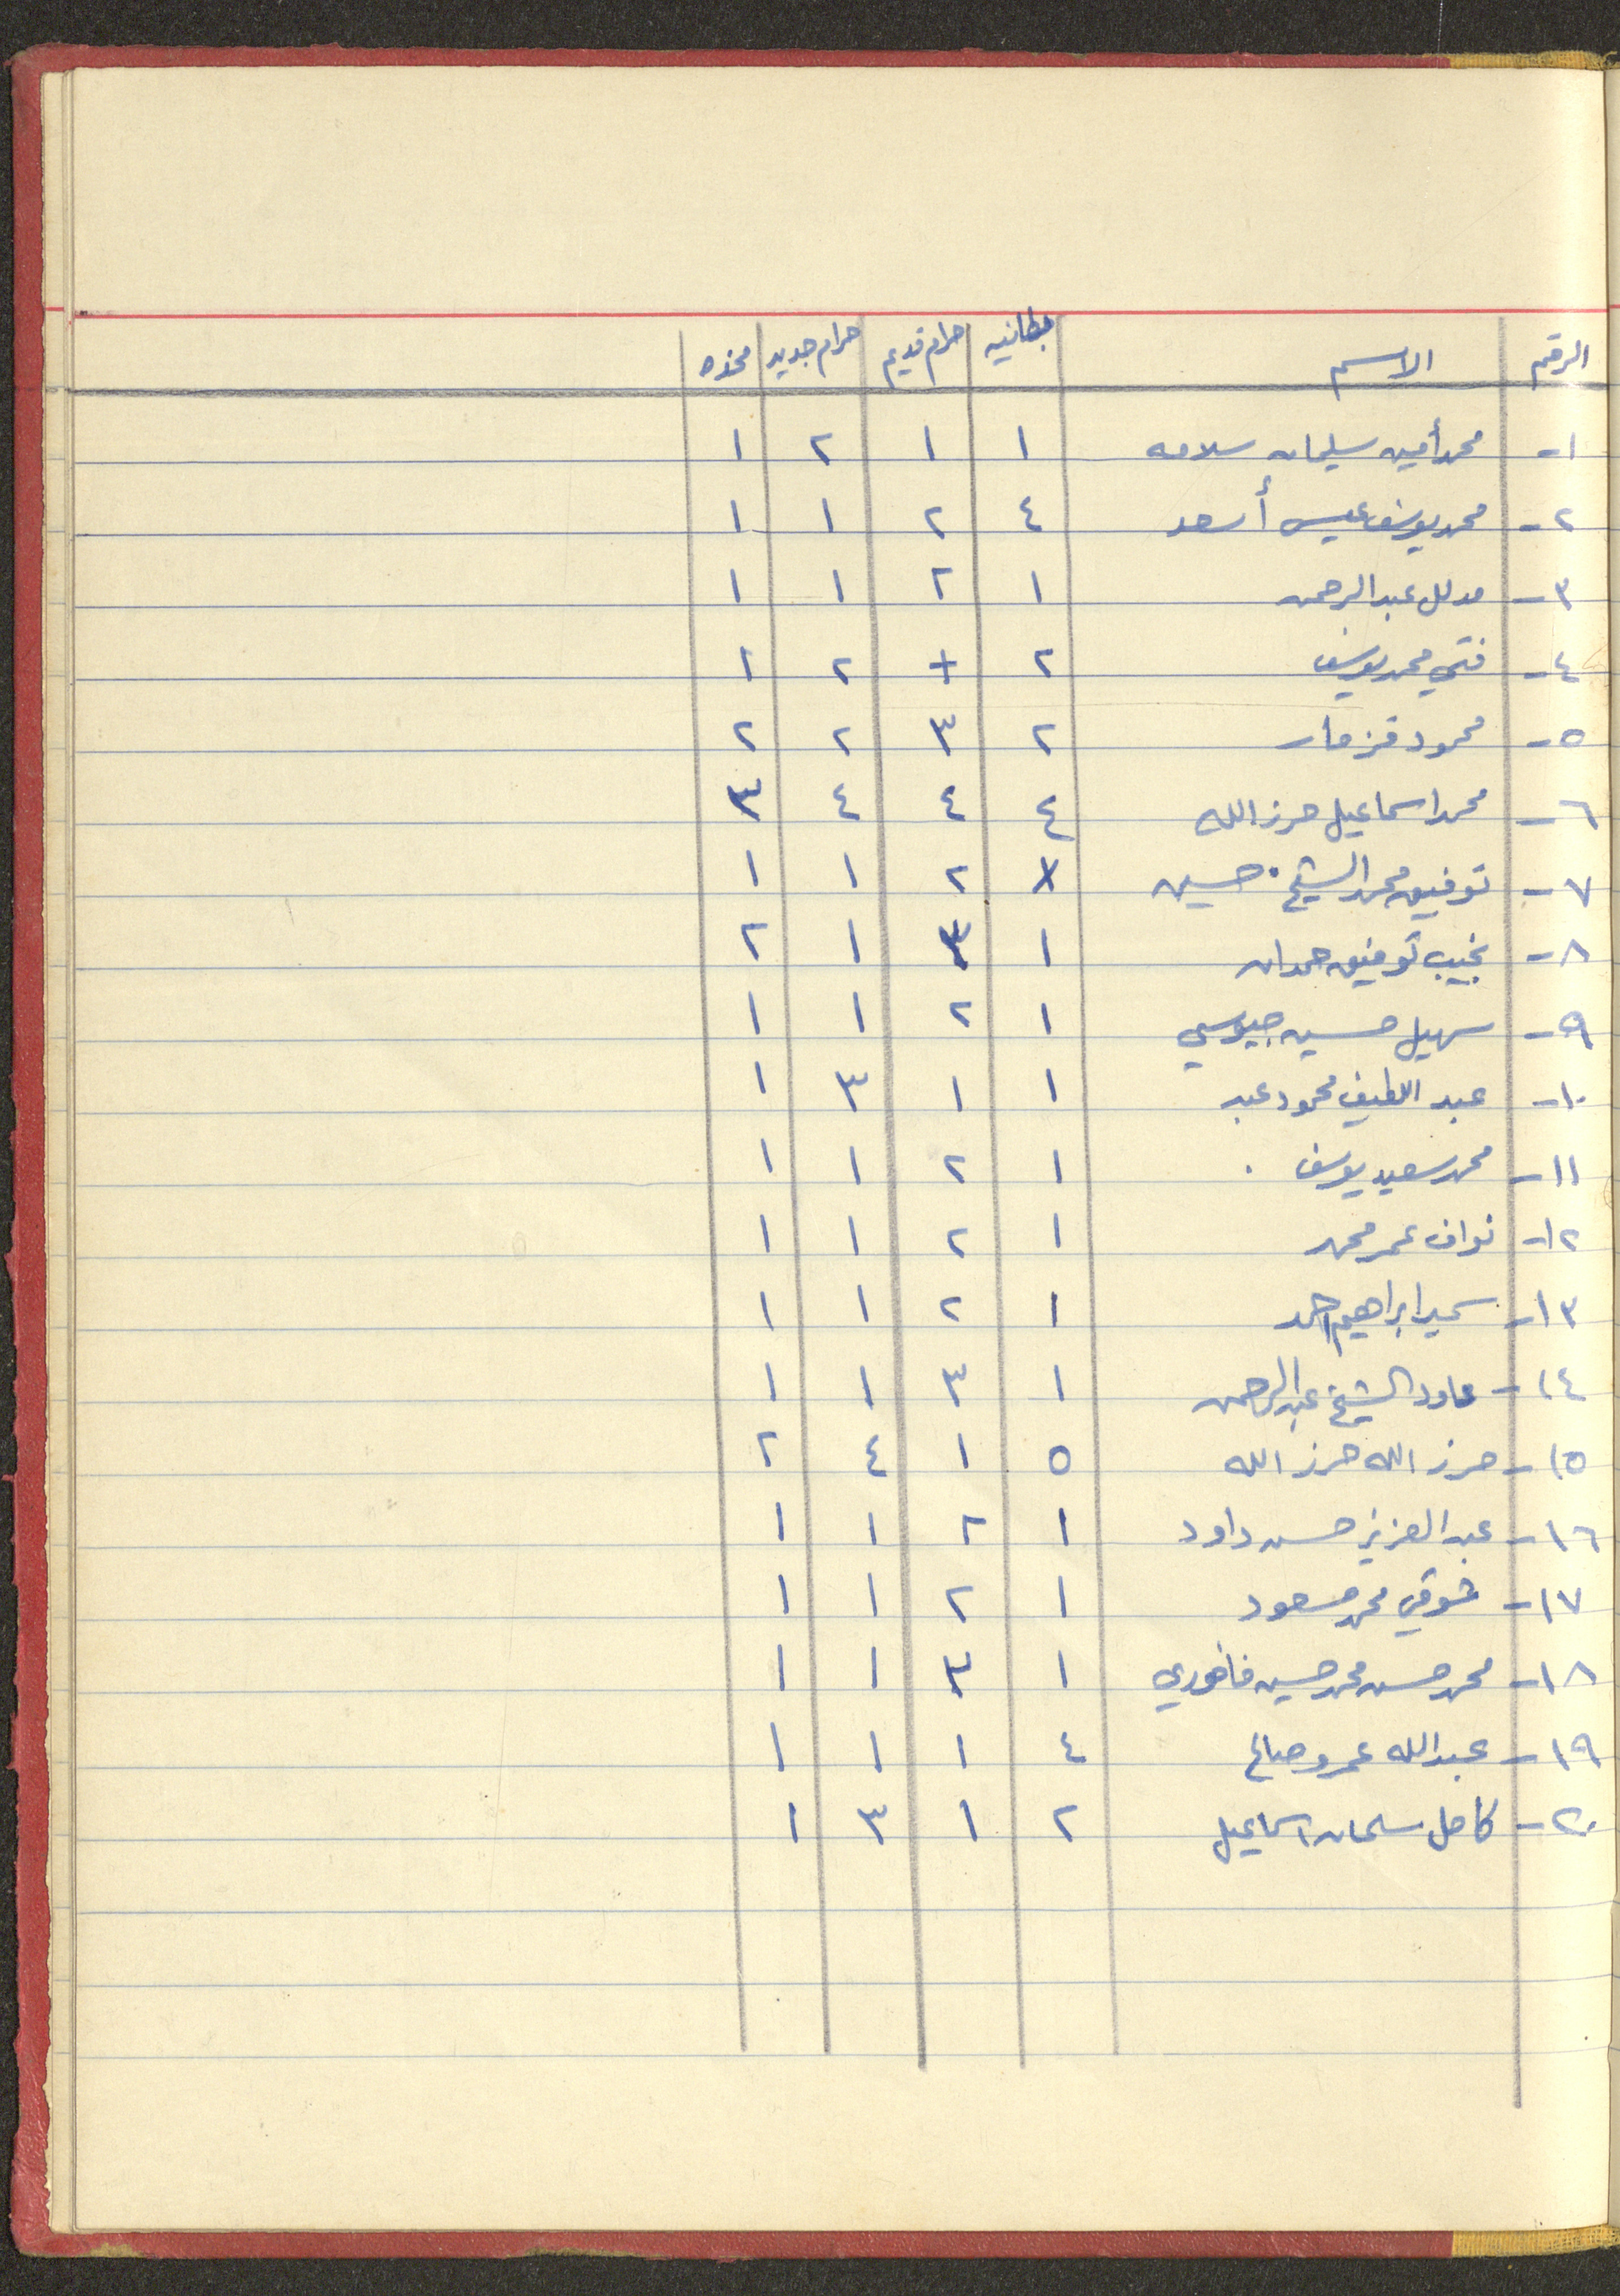 الرقم الاسم بطانيه حرام قديم حرام جديد مخده
١- محمد أمين سليمان سلامه ١ ١ ٢ ١
٢- محمد يوسف عيسى أسعد ٤ ٢ ١ ١
٣- مدلل عبد الرحمن ١ ٢ ١ ١
٤- فتحي محمد يوسف ٢ + ٢ ١
٥- محمود قزمار ٢ ٣ ٢ ٢
٦- محمد اسماعيل حرز الله ٤ ٤ ٤ ٣
٧- توفيق محمد الشيخ حسين x ٢ ١ ١
٨- نجيب توفيق حمدان ١ ٣ ١ ٢
٩- سهيل حسين جيوسي ١ ٢ ١ ١
١٠- عبد اللطيف محمود عبد ١ ١ ٣ ١
١١- محمد سعيد يوسف ١ ٢ ١ ١
١٢- نواف عمر محمد ١ ٢ ١ ١
١٣- سمير ابراهيم احمد ١ ٢ ١ ١
١٤- داود الشيخ عبد الرحمن ١ ٣ ١ ١
١٥- حرز الله حرز الله ٥ ١ ٤ ٢
١٦- عبد العزيز حسن داود ١ ٢ ١ ١
١٧- شوقي محمد مسعود ١ ٢ ١ ١
١٨- محمد حسن محمد حسين فاخوري ١ ٣ ١ ١
١٩- عبد الله عمر وصالح ٤ ١ ١ ١
٢٠- كامل سلمان اسماعيل ٢ ١ ٣ ١